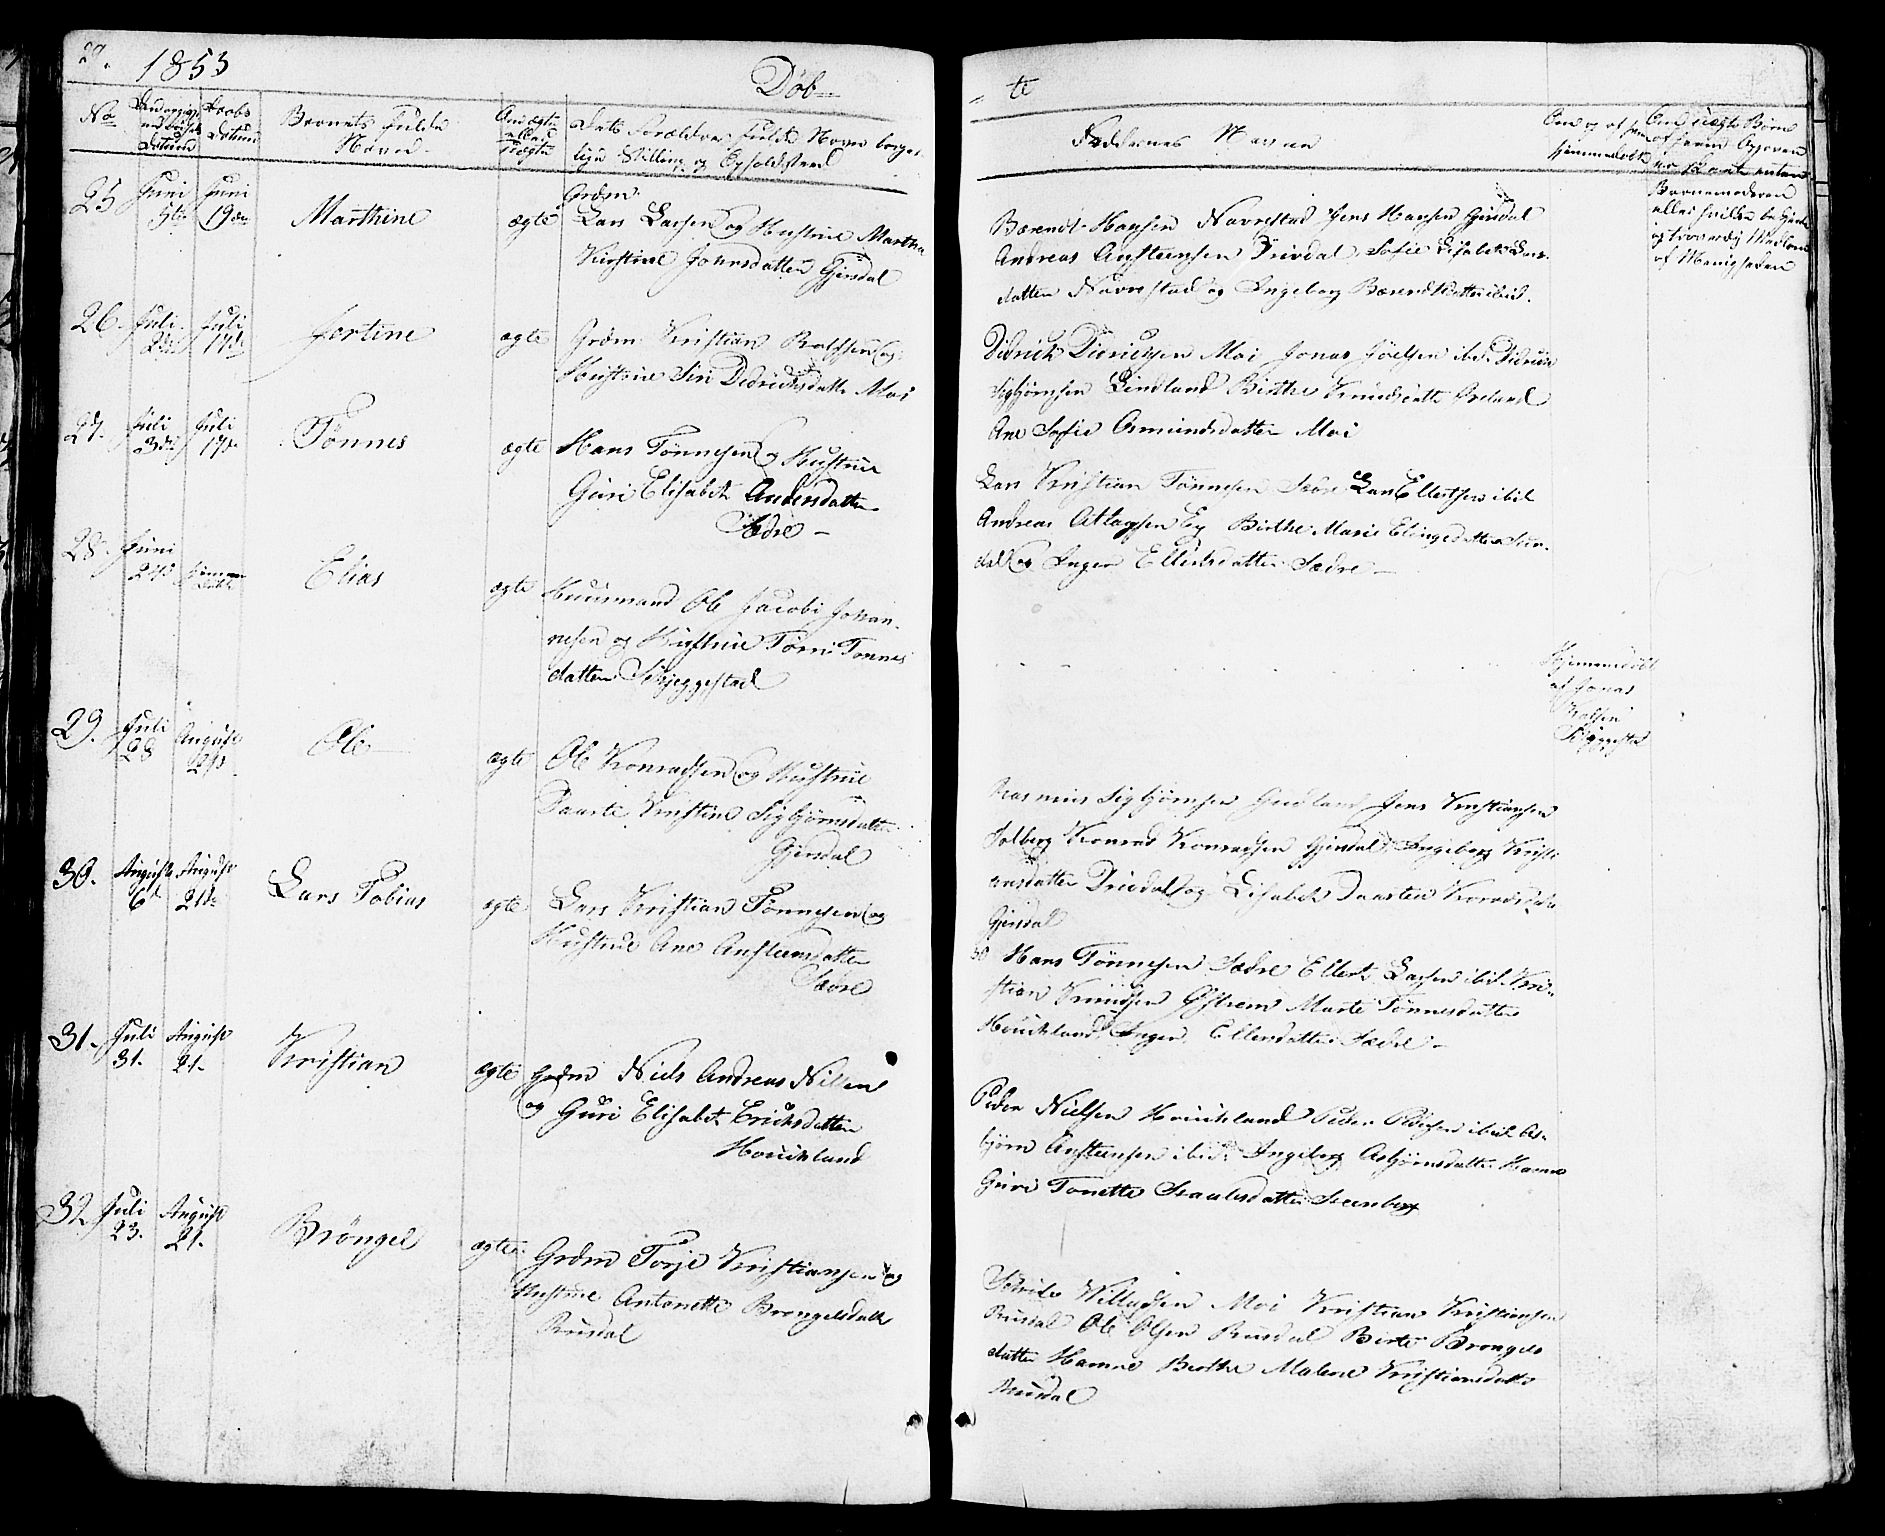 29.
1853
Døb-
- te
No
Daabs
Datum
Barnets fulde
Navn
Om ægte
eller
uægte
Forældres fulde Navn borger
lige Stilling og Opholdssted
Faddernes Navne
Om og af hvem
hjemmedøbt
Om uægte Børn
25
Juni
5te
Juni
19de
Marthine
ægte
Grdm
Lars Larsen og Hustrue Martha
Kirstine Johnsdatter Gjesdal
Berendt Hansen Navrestad Jens Hansen Gjesdal
Andreas Anstensen Drivdal Sofie Elisabet Lars-
datter Navrestad og Ingeborg Berendtsdatter ibid.
Barnemoderen
af Menigheden
26.
Juli
2den
Juli
17de
Jortine
ægte
Grdm Kristian Rolfsen og
Hustrue Siri Dedrichsdatter Moi
Didrick Didricksen Moi Jonas Joelsen ibid Didrick
Sigbjørnsen Lindland Birthe Knudsdatter Øreland
Ane Sofie Osmundsdatter Moi
27.
Juli
3die
Juli
17de
Tønnes
ægte
Hans Tønnesen og Hustrue
Guri Elisabet Andersdatter
Sædre -
Lars Kristian Tønnesen Sædre Lars Ellertsen ibid
Andreas Atlagsen Eg Birthe Marie Elingsdatter Sun-
dal og Inger Ellertsdatter Sædre -
28.
Juni
24d
hjemme
døbt
Elias
ægte
Huusmand Ole Jacobi Johan-
nesen og Hustrue Torri Tønnes
datter Skjeggestad
Hjemmedøbt
af Jonas
Rolfsen
Skjeggestad
29.
Juli
28
August
21d
Ole
ægte
Ole Konradsen og Hustrue
Daarte Kristine Sigbjørnsdatter
Gjesdal
Rasmus Sigbjørnsen Gudland Jens Kristiansen
Solberg Konrad Konradsen Gjesdal Ingeborg Kristi
ansdatter Drivdal og Elisabet Daarten Konradsdatter
Gjesdal
30.
August
6d
August
21de
Lars Tobias
ægte
Lars Kristian Tønnesen og
Hustrue Ane Anstensdatter
Sædre
30 Hans Tønnesen Sædre Ellert Larsen ibid Kri-
stian Knudsen Østrem Marte Tønnesdatter
Houchland Inger Ellersdatter Sædre -
31.
Juli
31.
August
21.
Kristian
ægte
Grdm Niels Andreas Nilsen
og Guri Elisabet Erichsdatter
Houchland
Peder Nielsen Houchland Peder Pedersen ibid As-
bjørn Anstensen ibid Ingeborg Asbjørnsdatter Hamre
Guri Tonette Paulesdatter Steenberg
32.
Juli
23.
August
21.
Brøngel
ægte
Grdm Torje Kristiansen og
Hustrue Antonette Brongelsdatter
Rusdal
Willadsen Moi Kristian Kristiansen
Rusdal Ole Olsen Rusdal Birte Brongels
datter Hamre Berthe Malene Kristiansdatter
Rusdal